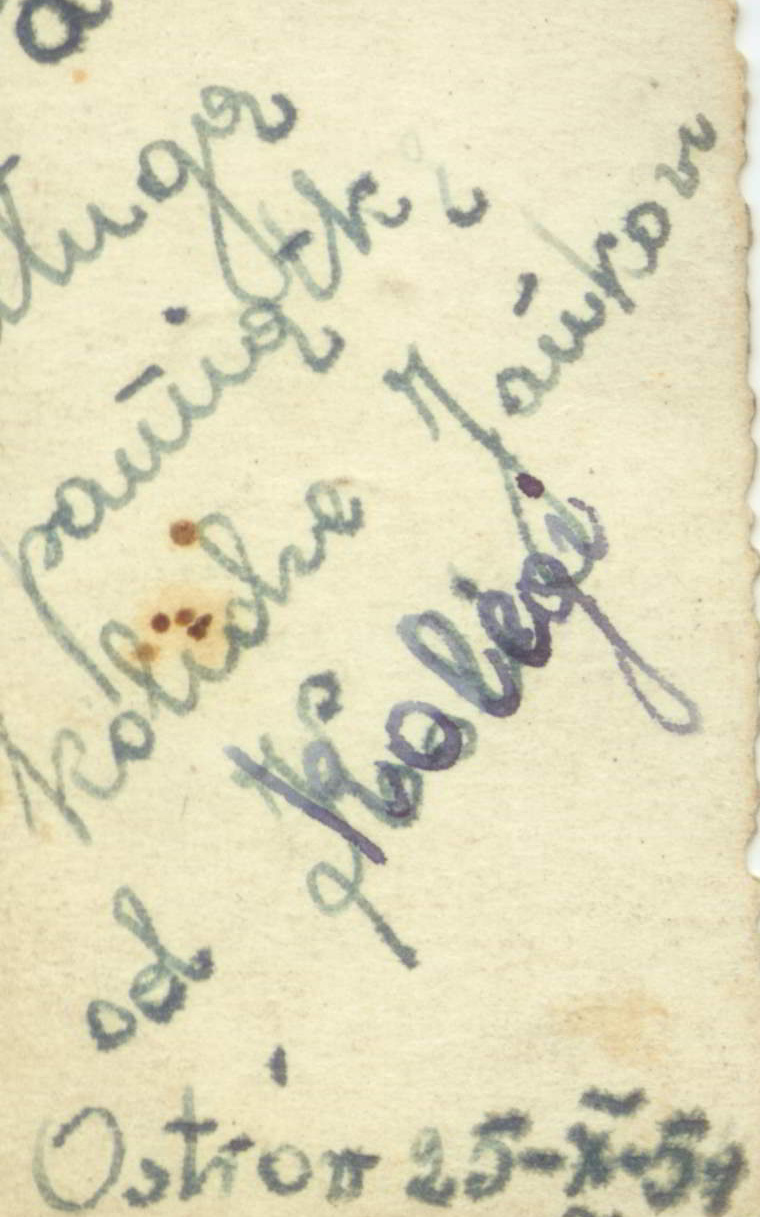 a
długą
pamiątkę
koledze Jankowi
od Kolegi
Ostrów 25-X-51